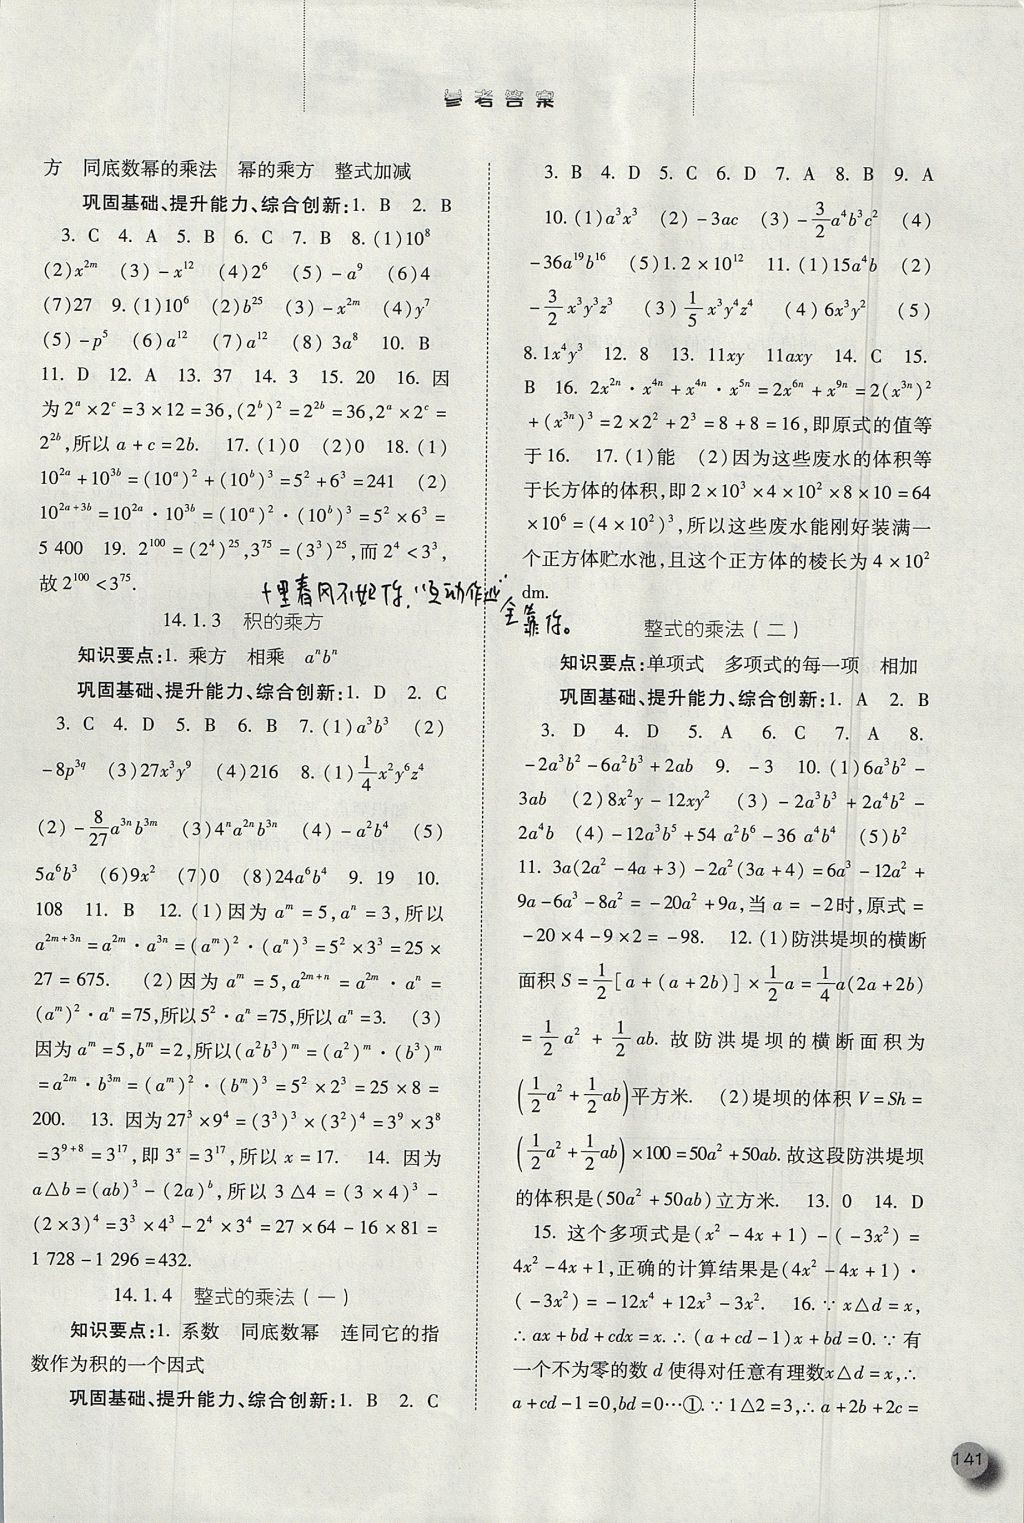 参考答案
方　同底数幂的乘法　幂的乘方　整式加减
巩固基础、提升能力、综合创新:1. B　2. B
3. C　4. A　5. B　6. C　7. B　8. (1)10⁸
(2)x²ᵐ　(3)－x¹²　(4)2⁶　(5)－a⁹　(6)4
(7)27　9. (1)10⁶　(2)b²⁵　(3)－x²ᵐ　(4)y⁷
(5)－p⁵　(6)a¹²　(7)a¹²　(8) 3a⁸　10. B
11. D　12. A　13. 37　14. 3　15. 20　16. 因
为2ᵃ×2ᶜ＝3×12＝36,(2ᵇ)²＝2²ᵇ＝36,2ᵃ×2ᶜ＝
2²ᵇ,所以 a＋c＝2b.　17. (1)0　(2)0　18. (1)
10²ᵃ＋10³ᵇ＝(10ᵃ)²＋(10ᵇ)³＝5²＋6³＝241　(2)
10²ᵃ⁺³ᵇ＝10²ᵃ·10³ᵇ＝(10ᵃ)²·(10ᵇ)³＝5²×6³＝
5 400　19. 2¹⁰⁰＝(2⁴)²⁵,3⁷⁵＝(3³)²⁵,而2⁴＜3³,
故2¹⁰⁰＜3⁷⁵.
14.1.3　积的乘方
知识要点:1. 乘方　相乘　aⁿbⁿ
巩固基础、提升能力、综合创新:1. D　2. C
3. C　4. D　5. B　6. B　7. (1)a³b³　(2)
－8p³q　(3)27x³y⁹　(4)216　8. (1)1/4x²y⁶z⁴
(2)－8/27a³ⁿb³ᵐ　(3)4ⁿa²ⁿb³ⁿ　(4)－a²b⁴　(5)
5a⁶b³　(6)9x²　(7)0　(8)24a⁶b⁴　9. 19　10.
108　11. B　12. (1)因为 aᵐ＝5,aⁿ＝3,所以
a²ᵐ⁺³ⁿ＝a²ᵐ·a³ⁿ＝(aᵐ)²·(aⁿ)³＝5²×3³＝25×
27＝675.　(2)因为 aᵐ＝5,a²ᵐ⁺ⁿ＝a²ᵐ·aⁿ＝
(aᵐ)²·aⁿ＝75,所以5²·aⁿ＝75,所以aⁿ＝3.　(3)
因为aᵐ＝5,bᵐ＝2,所以(a²b³)ᵐ＝(a²)ᵐ·(b³)ᵐ
＝a²ᵐ·b³ᵐ＝(aᵐ)²·(bᵐ)³＝5²×2³＝25×8＝
200.　13. 因为27³×9⁴＝(3³)³×(3²)⁴＝3⁹×3⁸
＝3⁹⁺⁸＝3¹⁷,即 3ˣ＝3¹⁷,所以 x＝17.　14. 因为
a△b＝(ab)³－(2a)ᵇ,所以 3△4＝(3×4)³－
(2×3)⁴＝3³×4³－2⁴×3⁴＝27×64－16×81＝
1 728－1 296＝432.
14.1.4　整式的乘法(一)
知识要点:1. 系数　同底数幂　连同它的指
数作为积的一个因式
巩固基础、提升能力、综合创新:1. B　2. C
3. B　4. D　5. C　6. D　7. A　8. B　9. A
10. (1)a³x³　(2)－3ac　(3)－3/2a⁴b³c²　(4)
－36a¹⁹b¹⁶　(5)1. 2×10¹²　11. (1)15a⁴b　(2)
－3/2x³y³z³　(3)1/5x³y⁴z⁴　(4)6x³y²　(5)
8.1x⁴y³　12. 8　13. 11xy　11axy　14. C　15.
B　16. 2x²ⁿ·x⁴ⁿ＋x⁴ⁿ·x⁵ⁿ＝2x⁶ⁿ＋x⁹ⁿ＝2(x³ⁿ)²
＋(x³ⁿ)³＝2×2²＋2³＝8＋8＝16,即原式的值等
于16.　17. (1)能　(2)因为这些废水的体积等
于长方体的体积,即 2×10³×4×10²×8×10＝64
×10⁶＝(4×10²)³,所以这些废水能刚好装满一
个正方体贮水池,且这个正方体的棱长为 4×10²
dm.
整式的乘法(二)
知识要点:单项式　多项式的每一项　相加
巩固基础、提升能力、综合创新:1. A　2. B
3. D　4. D　5. A　6. C　7. A　8.
－2a³b²－6a²b³＋2ab　9. －3　10. (1)6a³b²－
3ab　(2)8x²y－12xy²　(3)－2a³b³＋2a⁴b²－
2a⁴b　(4)－12a³b⁵＋54 a²b⁶－36 a⁴b⁴　(5)b²
11. 3a(2a²－4a＋3)－2a²(3a＋4)＝6a³－12a²＋
9a－6a³－8a²＝－20a²＋9a,当 a＝－2时,原式＝
－20×4－9×2＝－98.　12. (1)防洪堤坝的横断
面积 S＝1/2[a＋(a＋2b)]×1/2a＝1/4a(2a＋2b)
＝1/2a²＋1/2ab. 故防洪堤坝的横断面积为
(1/2a²＋1/2ab)平方米.　(2)堤坝的体积 V＝Sh＝
(1/2a²＋1/2ab)×100＝50a²＋50ab.故这段防洪堤坝
的体积是(50a²＋50ab)立方米.　13. 0　14. D
15. 这个多项式是(x²－4x＋1)－(－3x²)＝
4x²－4x＋1,正确的计算结果是(4x²－4x＋1)·
(－3x²)＝－12x⁴＋12x³－3x².　16. ∵x△d＝x,
∴ax＋bd＋cdx＝x.∴(a＋cd－1)x＋bd＝0.∵有
一个不为零的数 d 使得对任意有理数x△d＝x,∴
a＋cd－1＝0,bd＝0…①.∵1△2＝3,∴a＋2b＋2c＝
141